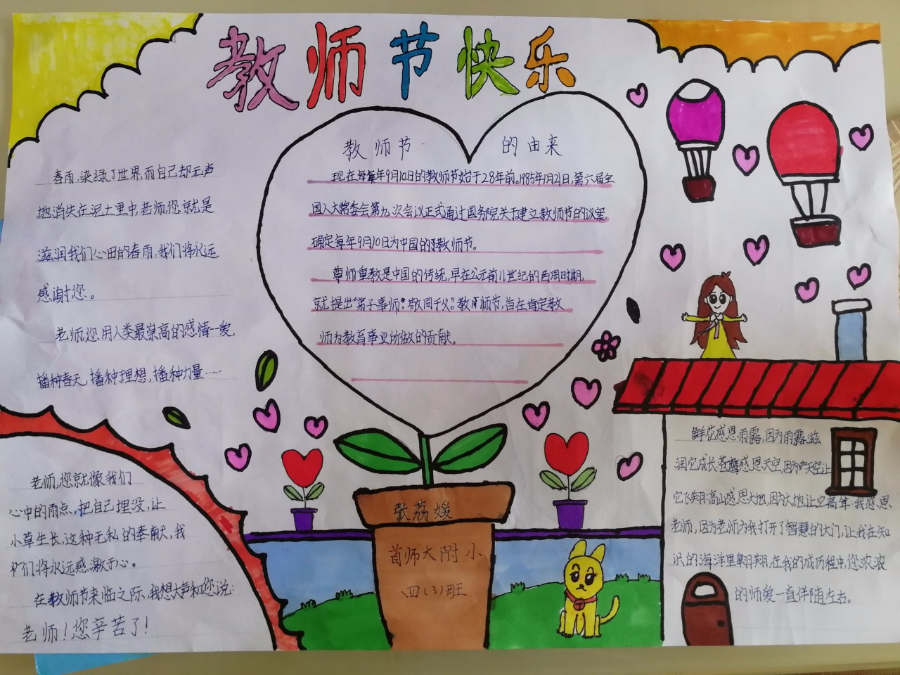 教师节快乐
春雨,染绿了世界,而自己却无声
地消失在泥土里中,老师,您就是
滋润我们心田的春雨,我们将永远
感谢您。
老师,您用人类最崇高的感情一爱,
播种春天,播种理想,播种力量……
教师节的由来
现在每年9月10日的教师节始于28年前,1985年1月21日,第六届全
国人大常委会第九次会议正式通过国务院关于建立教师节的议案
确定每年9月10日为中国的教师节。
尊师重教是中国的传统,早在公元前11世纪的西周时期,
就提出“弟子事师,敬同于父。”教师节,旨在肯定教
师为教育事业所做的贡献。
老师,您就像我们
心中的雨点,把自己埋没,让
小草生长,这种无私的奉献,我
们将永远感激于心。
在教师节来临之际,我想大声和您说:
老师!您辛苦了!
荔媛
首师大附小
四(3)班
鲜花感恩雨露,因为雨露滋
润它成长,苍鹰感恩天空,因为天空让
它飞翔,高山感恩大地,因为大地让它高耸,我感恩
老师,因为老师为我打开了智慧的大门,让我在知
识的海洋里翱翔,在我的成历程里,您浓浓
的师爱一直伴随左右。